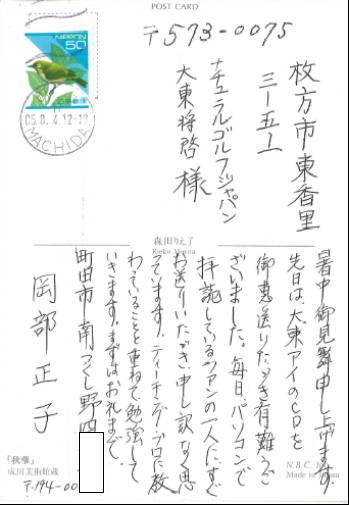 POST CARD
NIPPON
50
日本郵便
05.8.4.12-18
MACHIDA
〒573-0075
枚方市東香里
三-五-一
ナチュラルゴルフジャパン
大東将啓様
森田りえ子
Rieko Morita
暑中御見舞申し上げます。
先日は、大東アイのCDを
御恵送りいただき有難うご
ざいました。毎日、パソコンで
拝読しているファンの一人に、すぐ
お送りいただき、申し訳なく思
っています。ティーチングプロに教
わっていることを重ねて勉強して
いきます。まずはお礼まで。
町田市南つくし野四
岡部正子
「秋華」
成川美術館蔵
〒194-00
N.B.C.
Made in